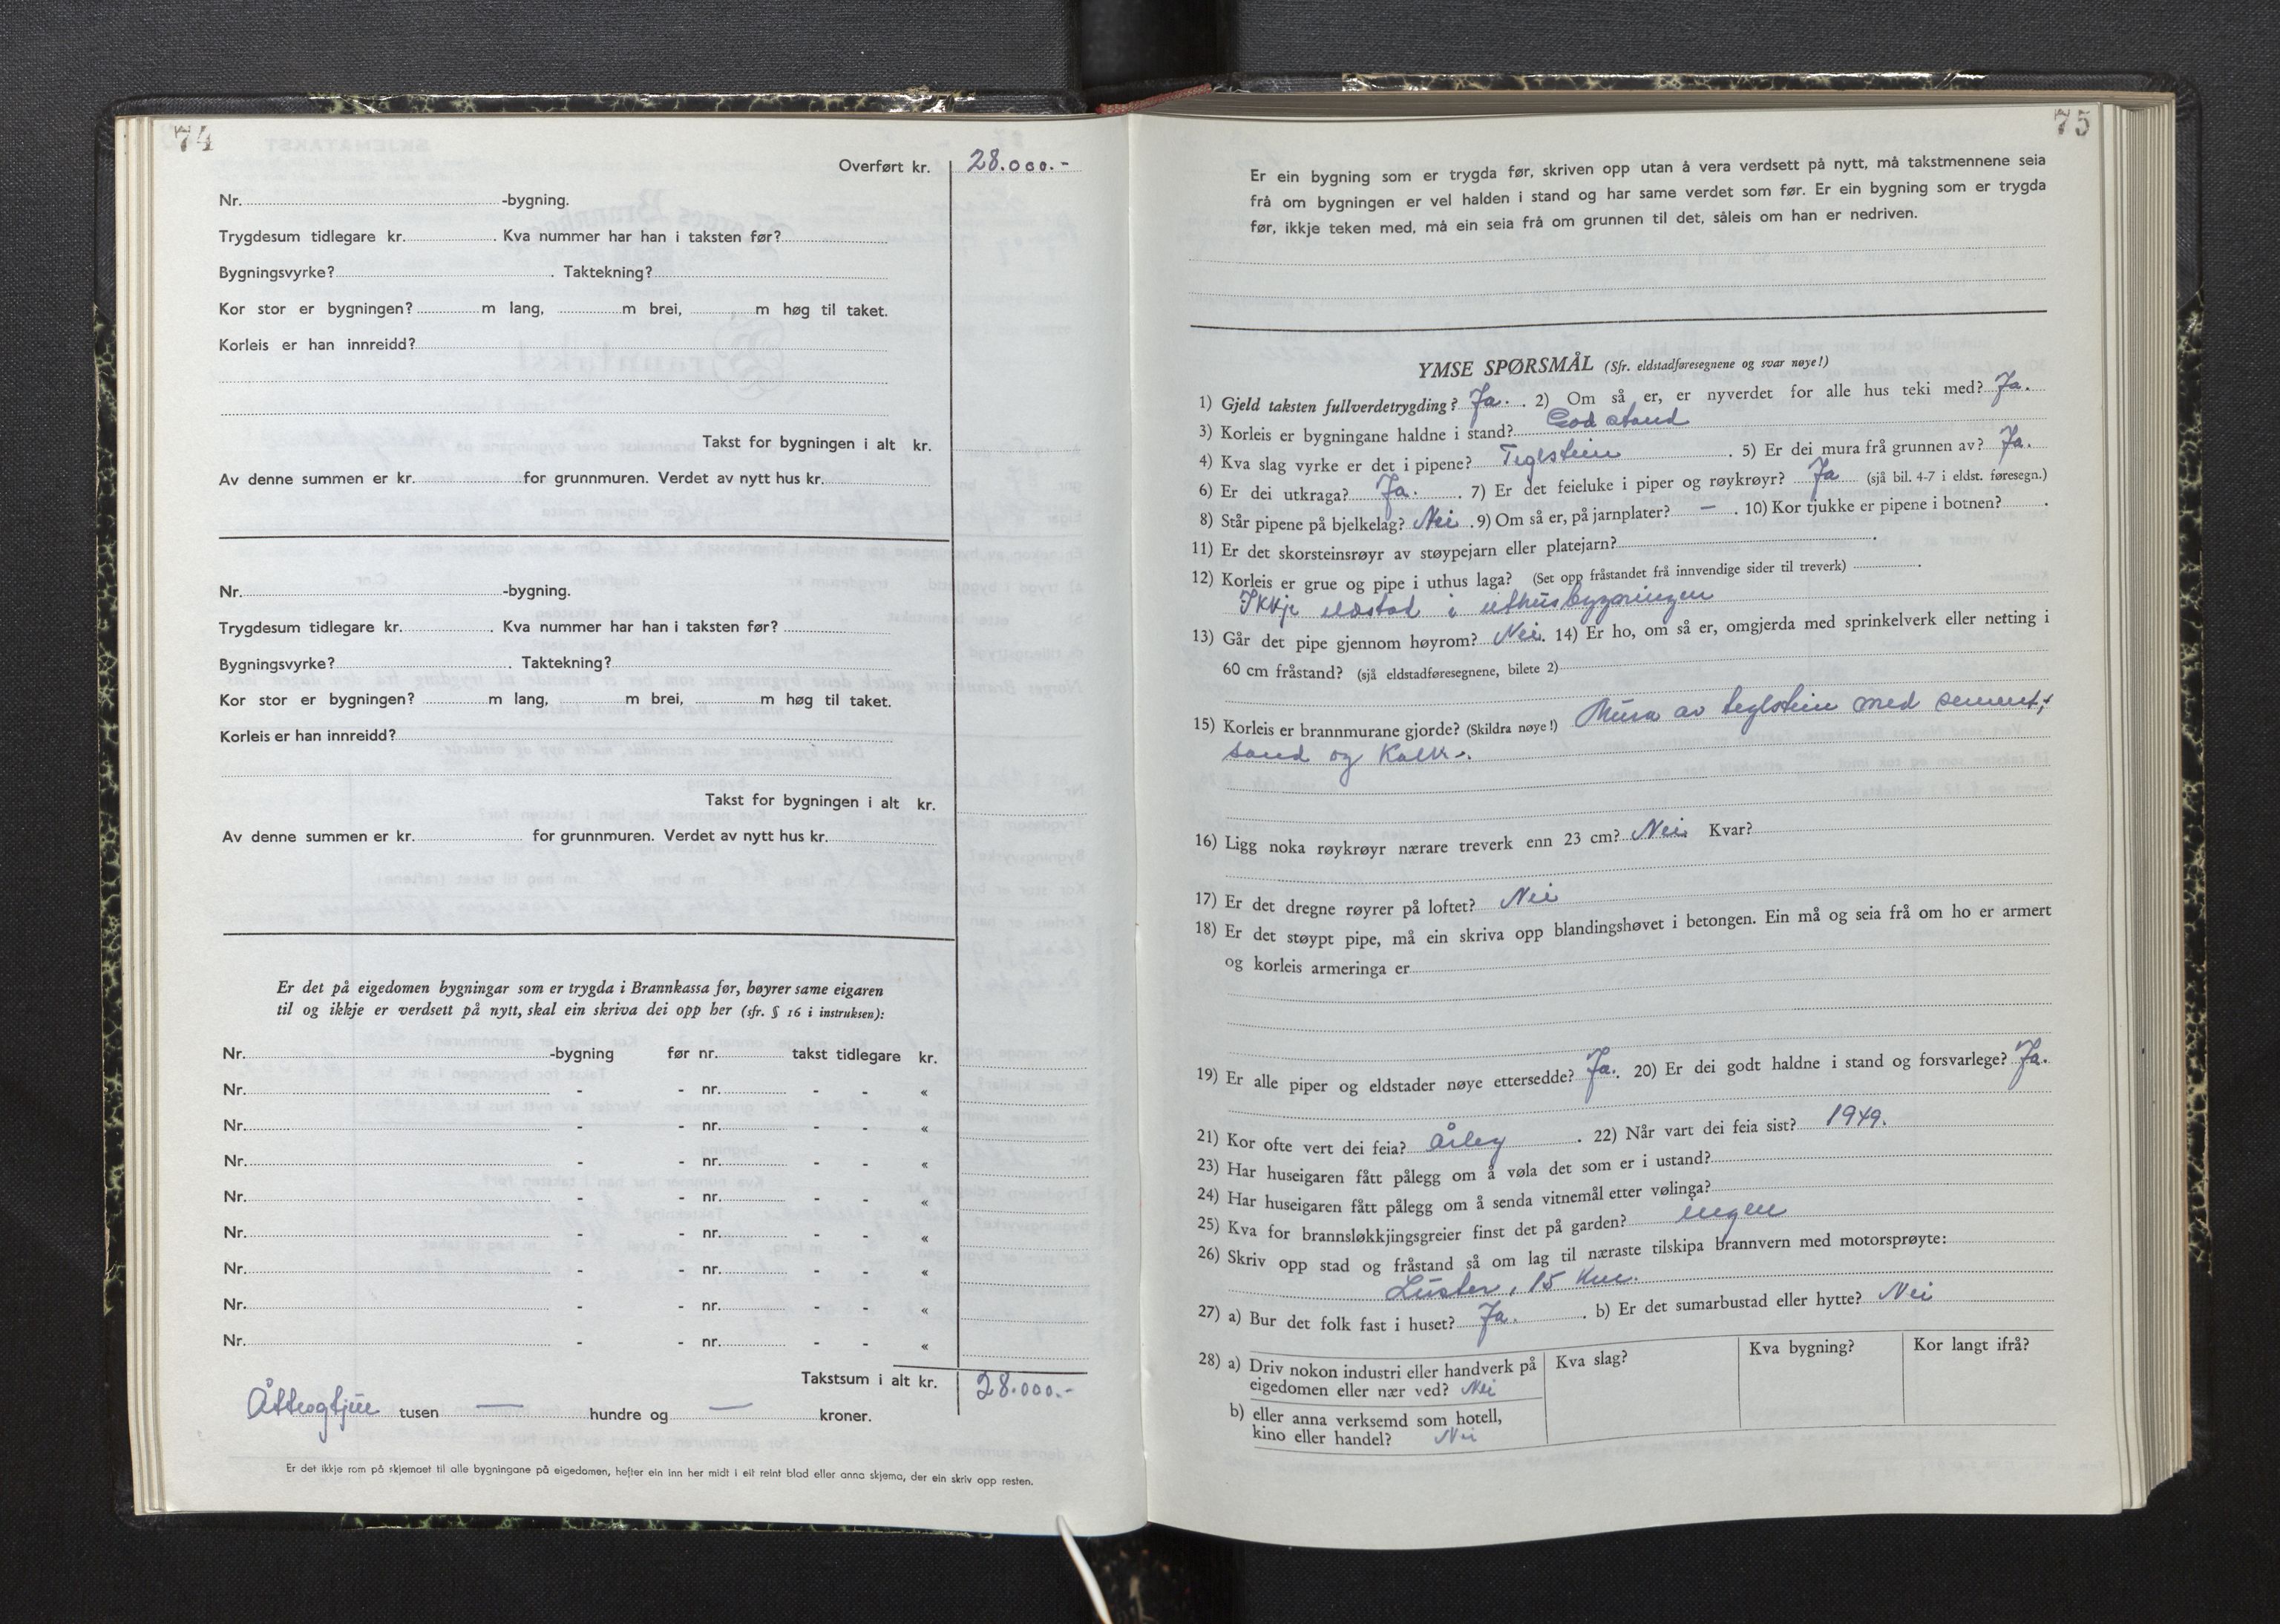 74
Overført kr. 28.000.-
Nr. -bygning.
Trygdesum tidlegare kr. . Kva nummer har han i taksten før?
Bygningsvyrke? . Taktekning?
Kor stor er bygningen? m lang, m brei, m høg til taket.
Korleis er han innreidd?
Takst for bygningen i alt kr.
Av denne summen er kr. for grunnmuren. Verdet av nytt hus kr.
Nr. -bygning.
Trygdesum tidlegare kr. . Kva nummer har han i taksten før?
Bygningsvyrke? . Taktekning?
Kor stor er bygningen? m lang, m brei, m høg til taket.
Korleis er han innreidd?
Takst for bygningen i alt kr.
Av denne summen er kr. for grunnmuren. Verdet av nytt hus kr.
Er det på eigedomen bygningar som er trygda i Brannkassa før, høyrer same eigaren
til og ikkje er verdsett på nytt, skal ein skriva dei opp her (sfr. § 16 i instruksen):
Nr. -bygning før nr. takst tidlegare kr.
Nr. - - nr. - - «
Nr. - - nr. - - «
Nr. - - nr. - - «
Nr. - - nr. - - «
Nr. - - nr. - - «
Nr. - - nr. - - «
Nr. - - nr. - - «
Nr. - - nr. - - «
Takstsum i alt kr. 28.000.-
Åtteogtjue tusen — hundre og — kroner.
Er det ikkje rom på skjemaet til alle bygningane på eigedomen, hefter ein inn her midt i eit reint blad eller anna skjema, der ein skriv opp resten.
75
Er ein bygning som er trygda før, skriven opp utan å vera verdsett på nytt, må takstmennene seia
frå om bygningen er vel halden i stand og har same verdet som før. Er ein bygning som er trygda
før, ikkje teken med, må ein seia frå om grunnen til det, såleis om han er nedriven.
YMSE SPØRSMÅL (Sfr. eldstadføresegnene og svar nøye!)
1) Gjeld taksten fullverdetrygding? Ja. . 2) Om så er, er nyverdet for alle hus teki med? Ja.
3) Korleis er bygningane haldne i stand? God stand
4) Kva slag vyrke er det i pipene? Teglstein . 5) Er dei mura frå grunnen av? Ja.
6) Er dei utkraga? Ja. . 7) Er det feieluke i piper og røykrøyr? Ja (sjå bil. 4-7 i eldst. føresegn.)
8) Står pipene på bjelkelag? Nei . 9) Om så er, på jarnplater? — . 10) Kor tjukke er pipene i botnen? .
11) Er det skorsteinsrøyr av støypejarn eller platejarn? .
12) Korleis er grue og pipe i uthus laga? (Set opp fråstandet frå innvendige sider til treverk) .
Ikkje eldstad i uthusbygningen
13) Går det pipe gjennom høyrom? Nei. 14) Er ho, om så er, omgjerda med sprinkelverk eller netting i
60 cm fråstand? (sjå eldstadføresegnene, bilete 2)
15) Korleis er brannmurane gjorde? (Skildra nøye!) Mura av teglstein med sement,
sand og Kalk.
16) Ligg noka røykrøyr nærare treverk enn 23 cm? Nei. Kvar?
17) Er det dregne røyrer på loftet? Nei
18) Er det støypt pipe, må ein skriva opp blandingshøvet i betongen. Ein må og seia frå om ho er armert
og korleis armeringa er
19) Er alle piper og eldstader nøye ettersedde? Ja. . 20) Er dei godt haldne i stand og forsvarlege? Ja.
21) Kor ofte vert dei feia? Årleg . 22) Når vart dei feia sist? 1949.
23) Har huseigaren fått pålegg om å vøla det som er i ustand?
24) Har huseigaren fått pålegg om å senda vitnemål etter vølinga?
25) Kva for brannsløkkjingsgreier finst det på garden? ingen
26) Skriv opp stad og fråstand så om lag til næraste tilskipa brannvern med motorsprøyte:
Luster, 15 Km.
27) a) Bur det folk fast i huset? Ja. . b) Er det sumarbustad eller hytte? Nei
28) a) Driv nokon industri eller handverk på
eigedomen eller nær ved? Nei
b) eller anna verksemd som hotell,
kino eller handel? Nei
Kva slag?
Kva bygning?
Kor langt ifrå?